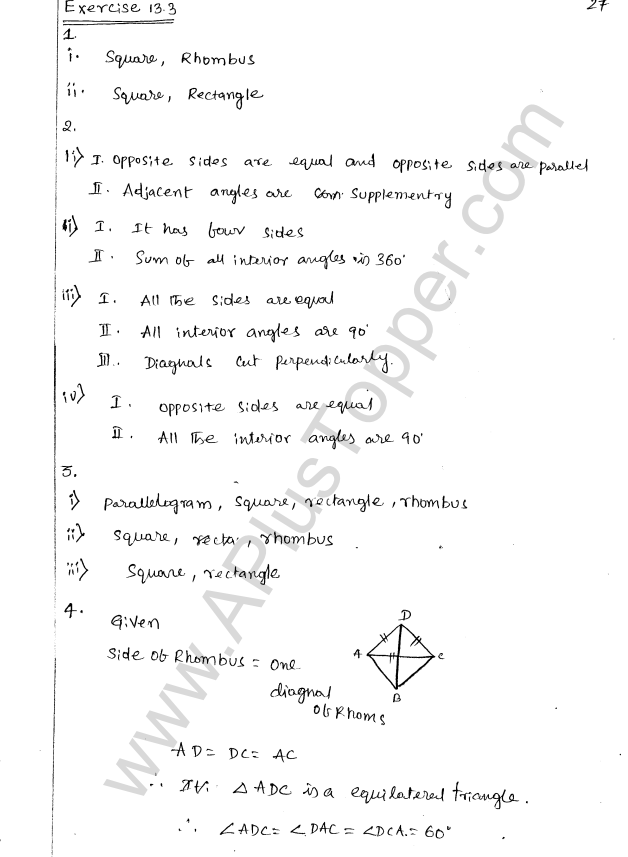 Exercise 13.3
27
1.
i. Square, Rhombus
ii. Square, Rectangle
2.
i) I. Opposite sides are equal and opposite sides are parallel
II. Adjacent angles are Supplementry
ii) I. It has four sides
II. Sum of all interior angles is 360°
iii) I. All the sides are equal
II. All interior angles are 90°
III. Diagnals cut perpendicularly.
iv) I. opposite sides are equal
II. All the interior angles are 90°
3.
i) parallelogram, square, rectangle, rhombus
ii) square, recta., rhombus
iii) square, rectangle
4. Given
Side of Rhombus = one
diagnal
of Rhoms
D
A
C
B
AD = DC = AC
∴ △ADC is a equilatered triangle.
∴ ∠ADC = ∠DAC = ∠DCA = 60°
www.APlusTopper.com